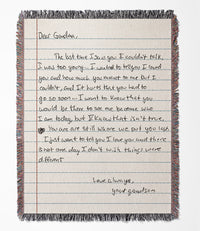 Dear Grandma,
The last time I saw you I couldn't talk,
I was too young - I wanted to tell you I loved
you and how much you meant to me but I
couldn't, and It hurts that you had to
go so soon - I want to know that you
would be there to see me become who
I am today, but I know that isn't true.
You are still where we put you last
I just want to tell you I love you and there
is not one day I don't wish things were
different
Love always,
your grandson